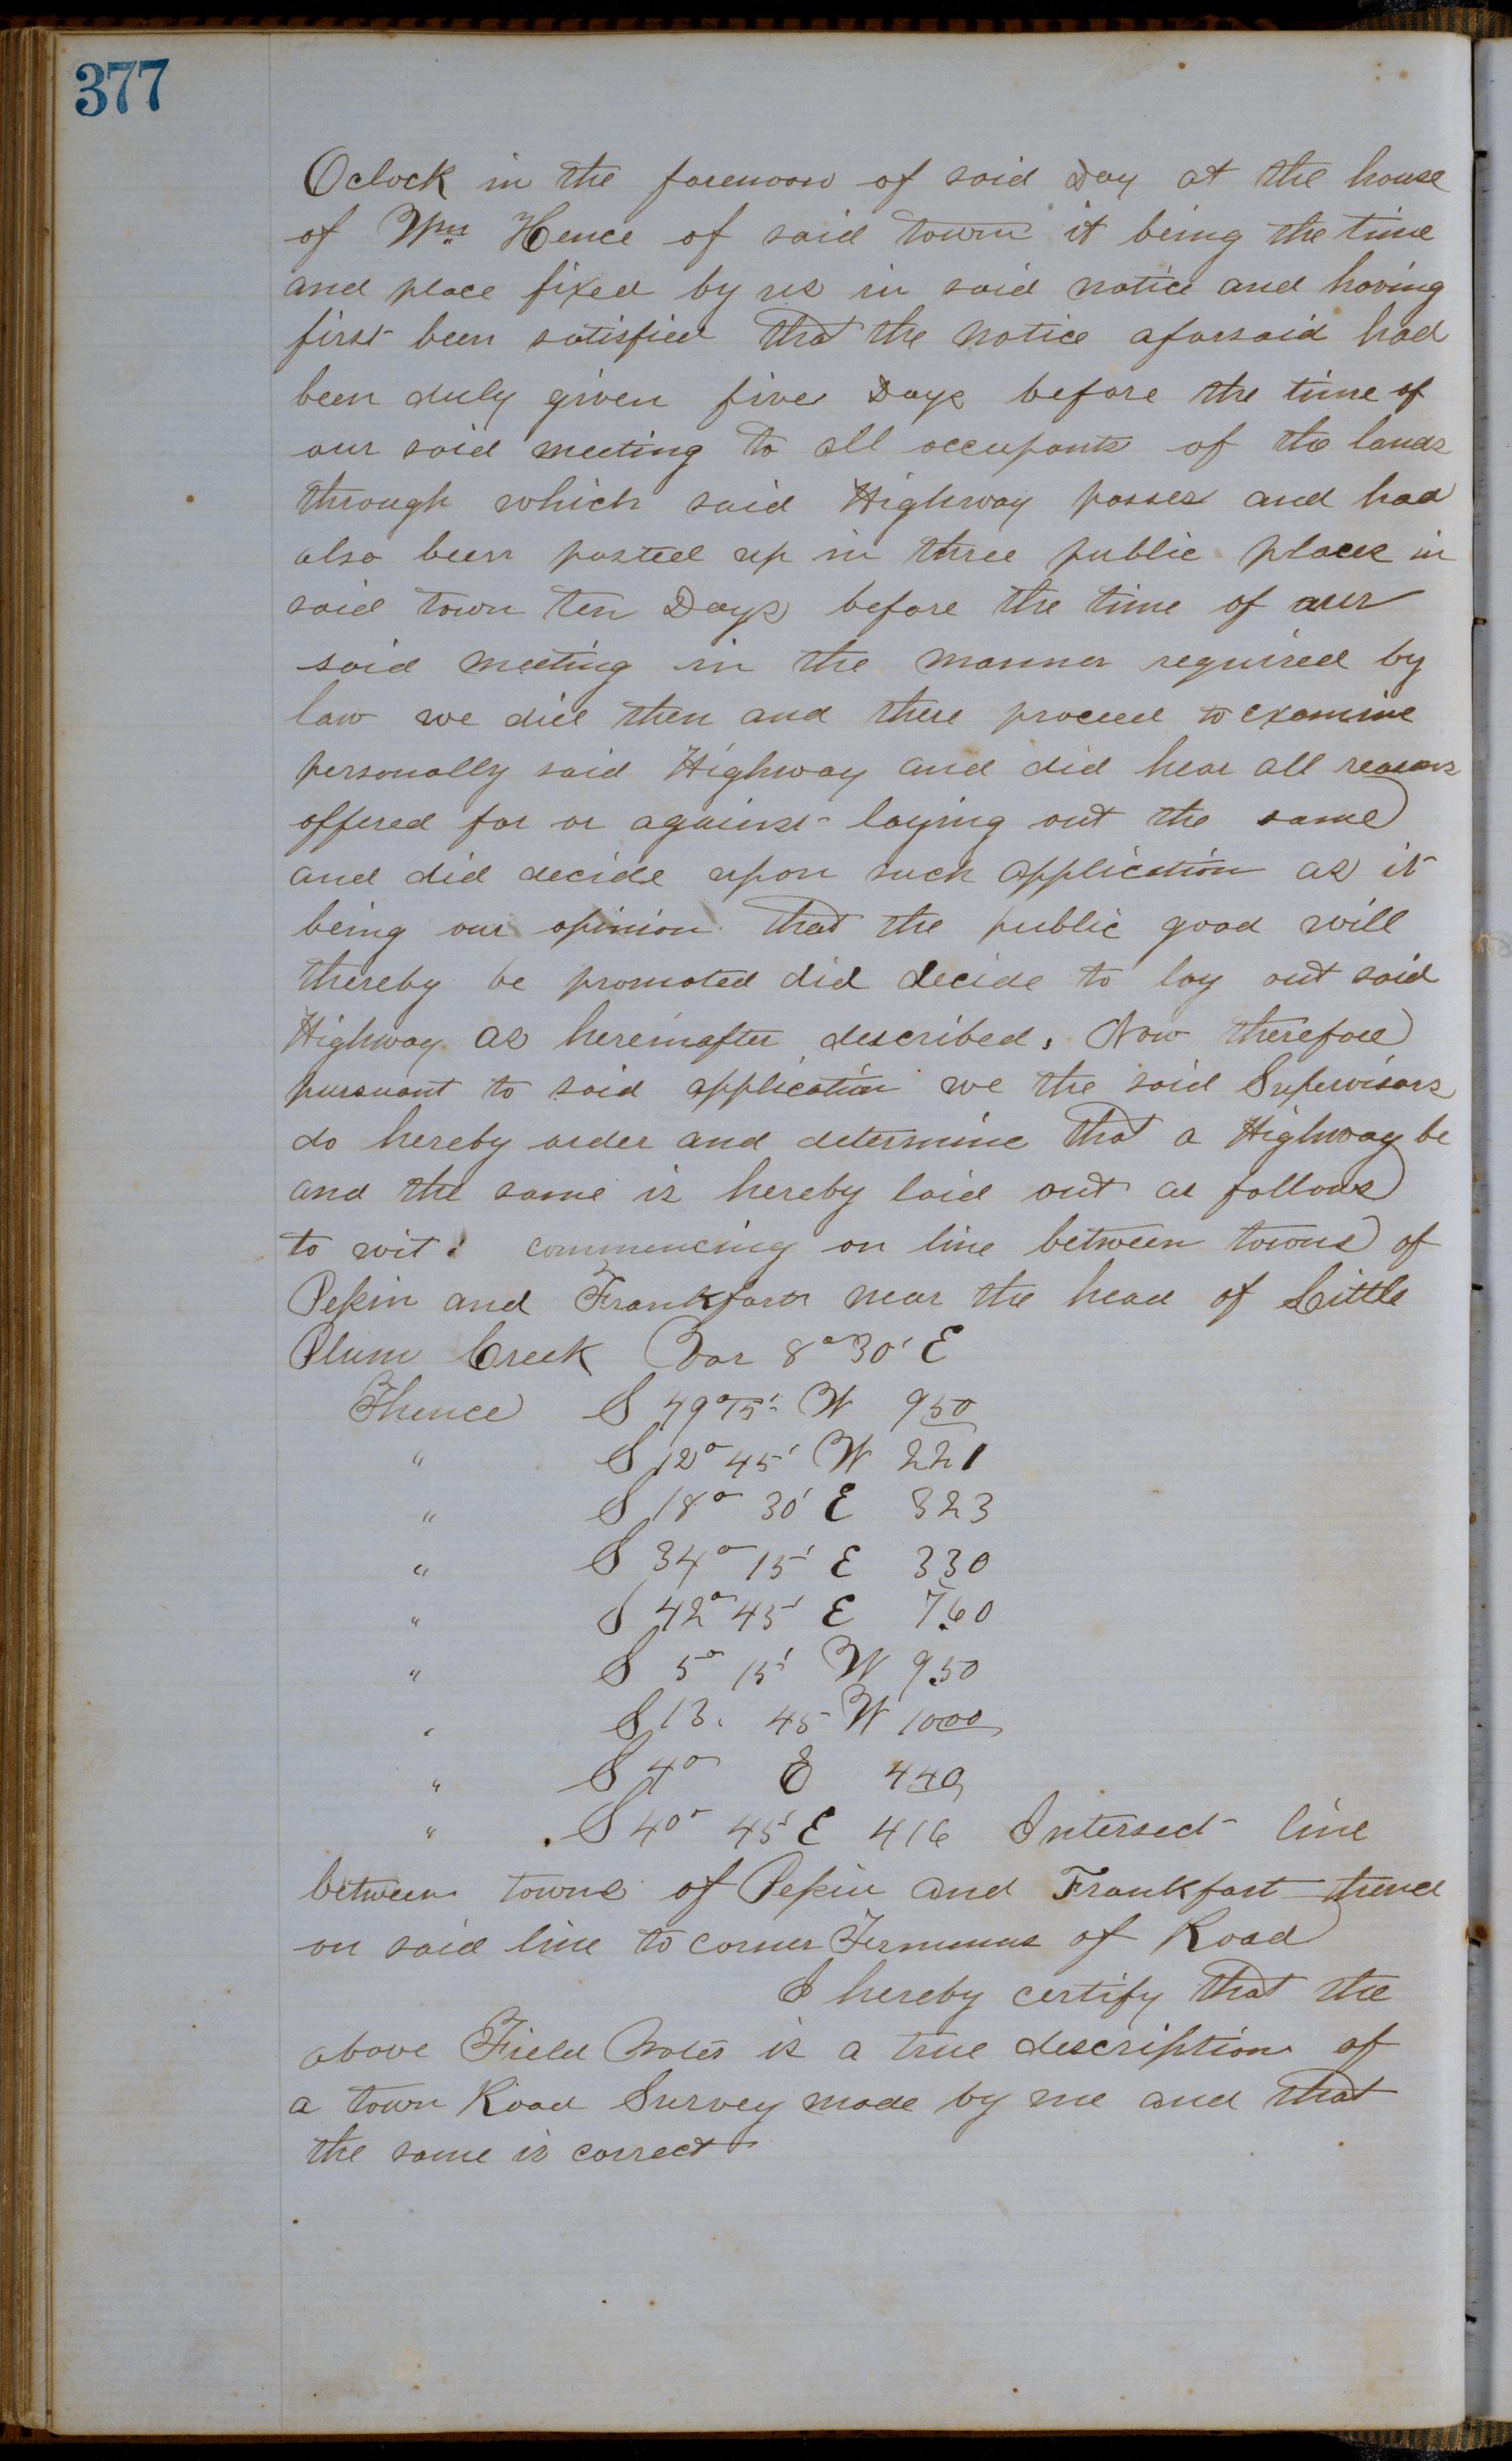 377
Oclock in the forenoon of said Day at the house
of Wm Hence of said town it being the time
and place fixed by us in said notice and having
first been satisfied that the notice aforsaid had
been duly given five Days before the time of
our said meeting to all occupants of the lands
through which said Highway passes and had
also been posted up in three public places in
said town ten Days before the time of our
said meeting in the manner required by
law we did then and there proceed to examine
personally said Highway and did hear all reasons
offered for or against laying out the same
and did decide upon such application as it
being our opinion that the public good will
thereby be promoted did decide to lay out said
Highway as hereinafter described, Now therefore
pursuant to said application we the said Supervisors
do hereby order and determine that a Highway be
and the same is hereby laid out as follows
to wit: commencing on line between towns of
Pepin and Frankfort near the head of Little
Plum Creek Var 8° 30' E
Thence S 49° 15' W 950
" S 12° 45' W 221
" S 18° 30' E 323
" S 34° 15' E 330
" S 42° 45' E 7.60
" S 5° 15' W 9.50
" S 13. 45 W 1000
" S 4° E 440
" S 40° 45' E 416 Intersect line
between towns of Pepin and Frankfort thence
on said line to corner Terminus of Road
I hereby certify that the
above Field Notes is a true description of
a town Road Survey made by me and that
the same is correct